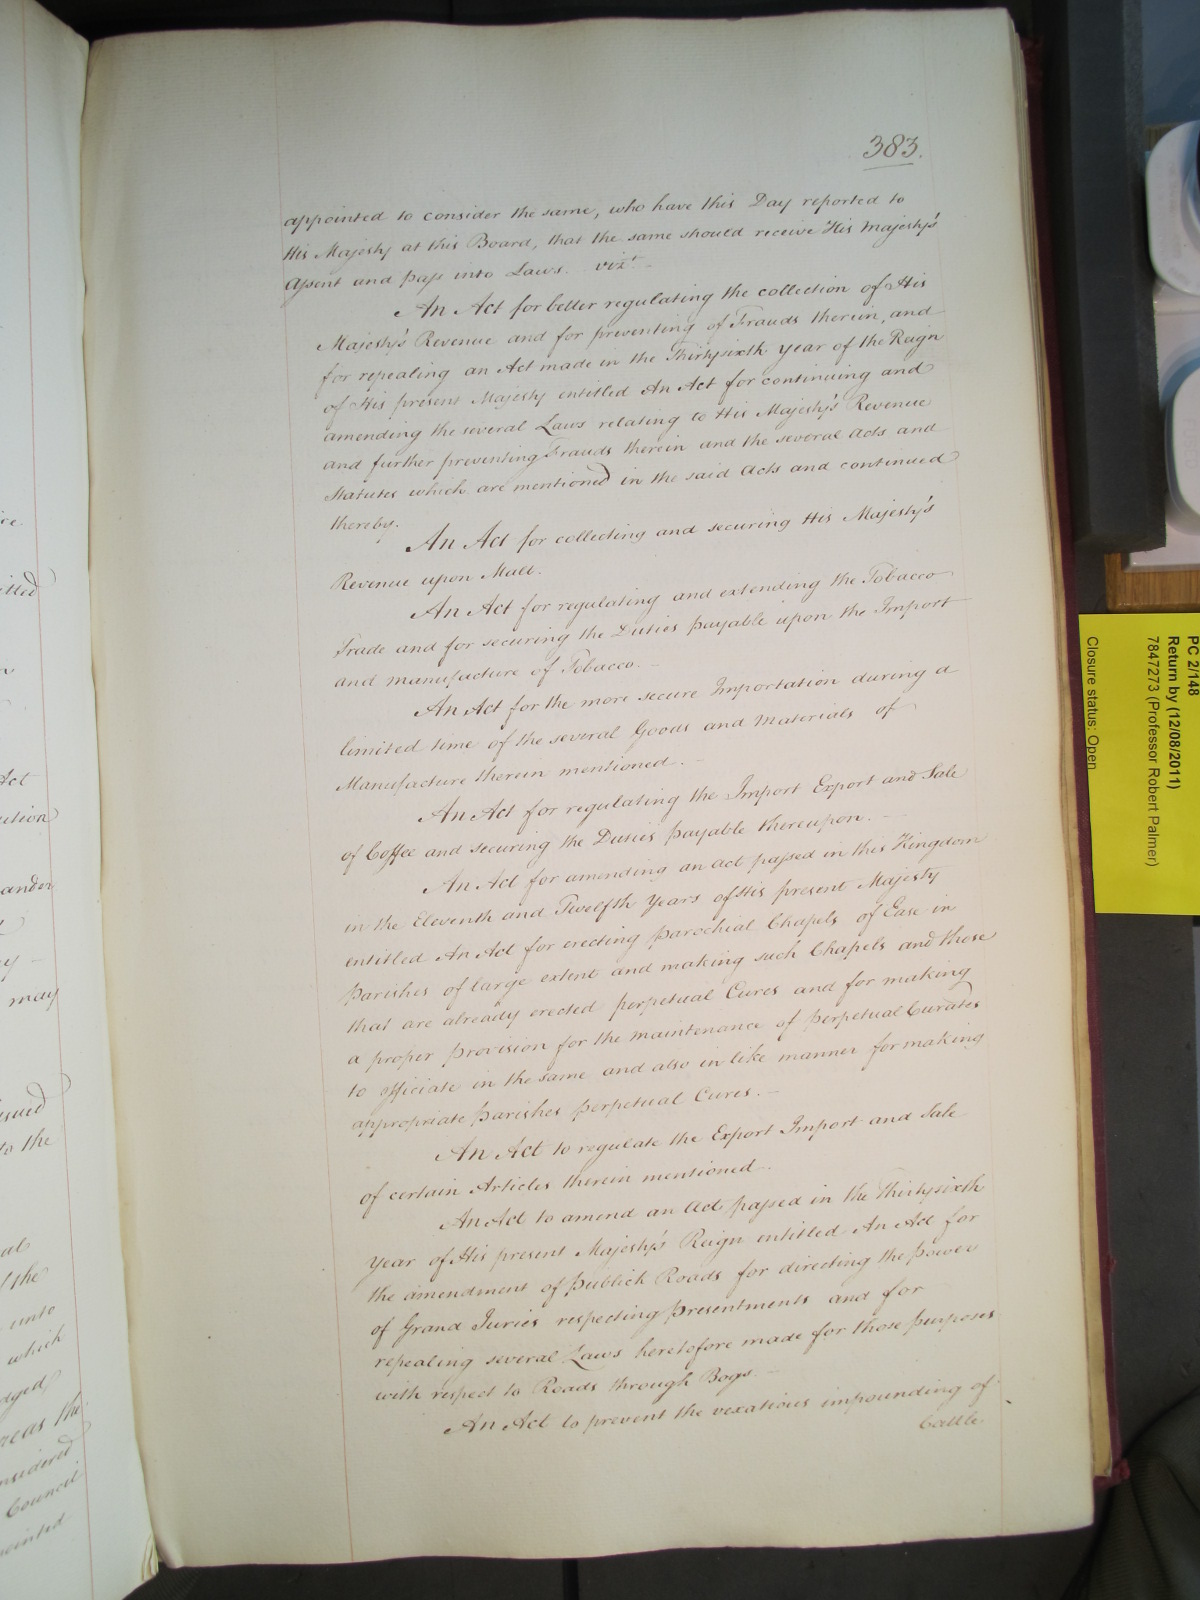 383.
appointed to consider the same, who have this Day reported to
His Majesty at this Board, that the same should receive His Majesty's
Assent and pass into Laws. vizt.
An Act for better regulating the collection of His
Majesty's Revenue and for preventing of Frauds therein, and
for repealing an Act made in the Thirtysixth year of the Reign
of His present Majesty entitled An Act for continuing and
amending the several Laws relating to His Majesty's Revenue
and further preventing Frauds therein and the several Acts and
Statutes which are mentioned in the said Acts and continued
thereby.
An Act for collecting and securing His Majesty's
Revenue upon Malt.
An Act for regulating and extending the Tobacco
Trade and for securing the Duties payable upon the Import
and manufacture of Tobacco.
An Act for the more secure Importation during a
limited time of the several Goods and Materials of
Manufacture therein mentioned.
An Act for regulating the Import Export and Sale
of Coffee and securing the Duties payable thereupon.
An Act for amending an Act passed in this Kingdom
in the Eleventh and Twelfth Years of His present Majesty
entitled An Act for erecting parochial Chapels of Ease in
Parishes of large extent and making such Chapels and those
that are already erected perpetual Cures and for making
a proper provision for the maintenance of perpetual Curates
to officiate in the same and also in like manner for making
appropriate parishes perpetual Cures.
An Act to regulate the Export Import and Sale
of certain Articles therein mentioned.
An Act to amend an Act passed in the Thirtysixth
year of His present Majesty's Reign entitled An Act for
the amendment of Publick Roads for directing the power
of Grand Juries respecting Presentments and for
repealing several Laws heretofore made for those purposes
with respect to Roads through Bogs.
An Act to prevent the vexatious impounding of
Cattle
itled
Act
ution
ander
may
issued
to the
the
unto
which
as the
nsidered
Council
ointed
PC 2/148
Return by (12/08/2011)
7847273 (Professor Robert Palmer)
Closure status: Open